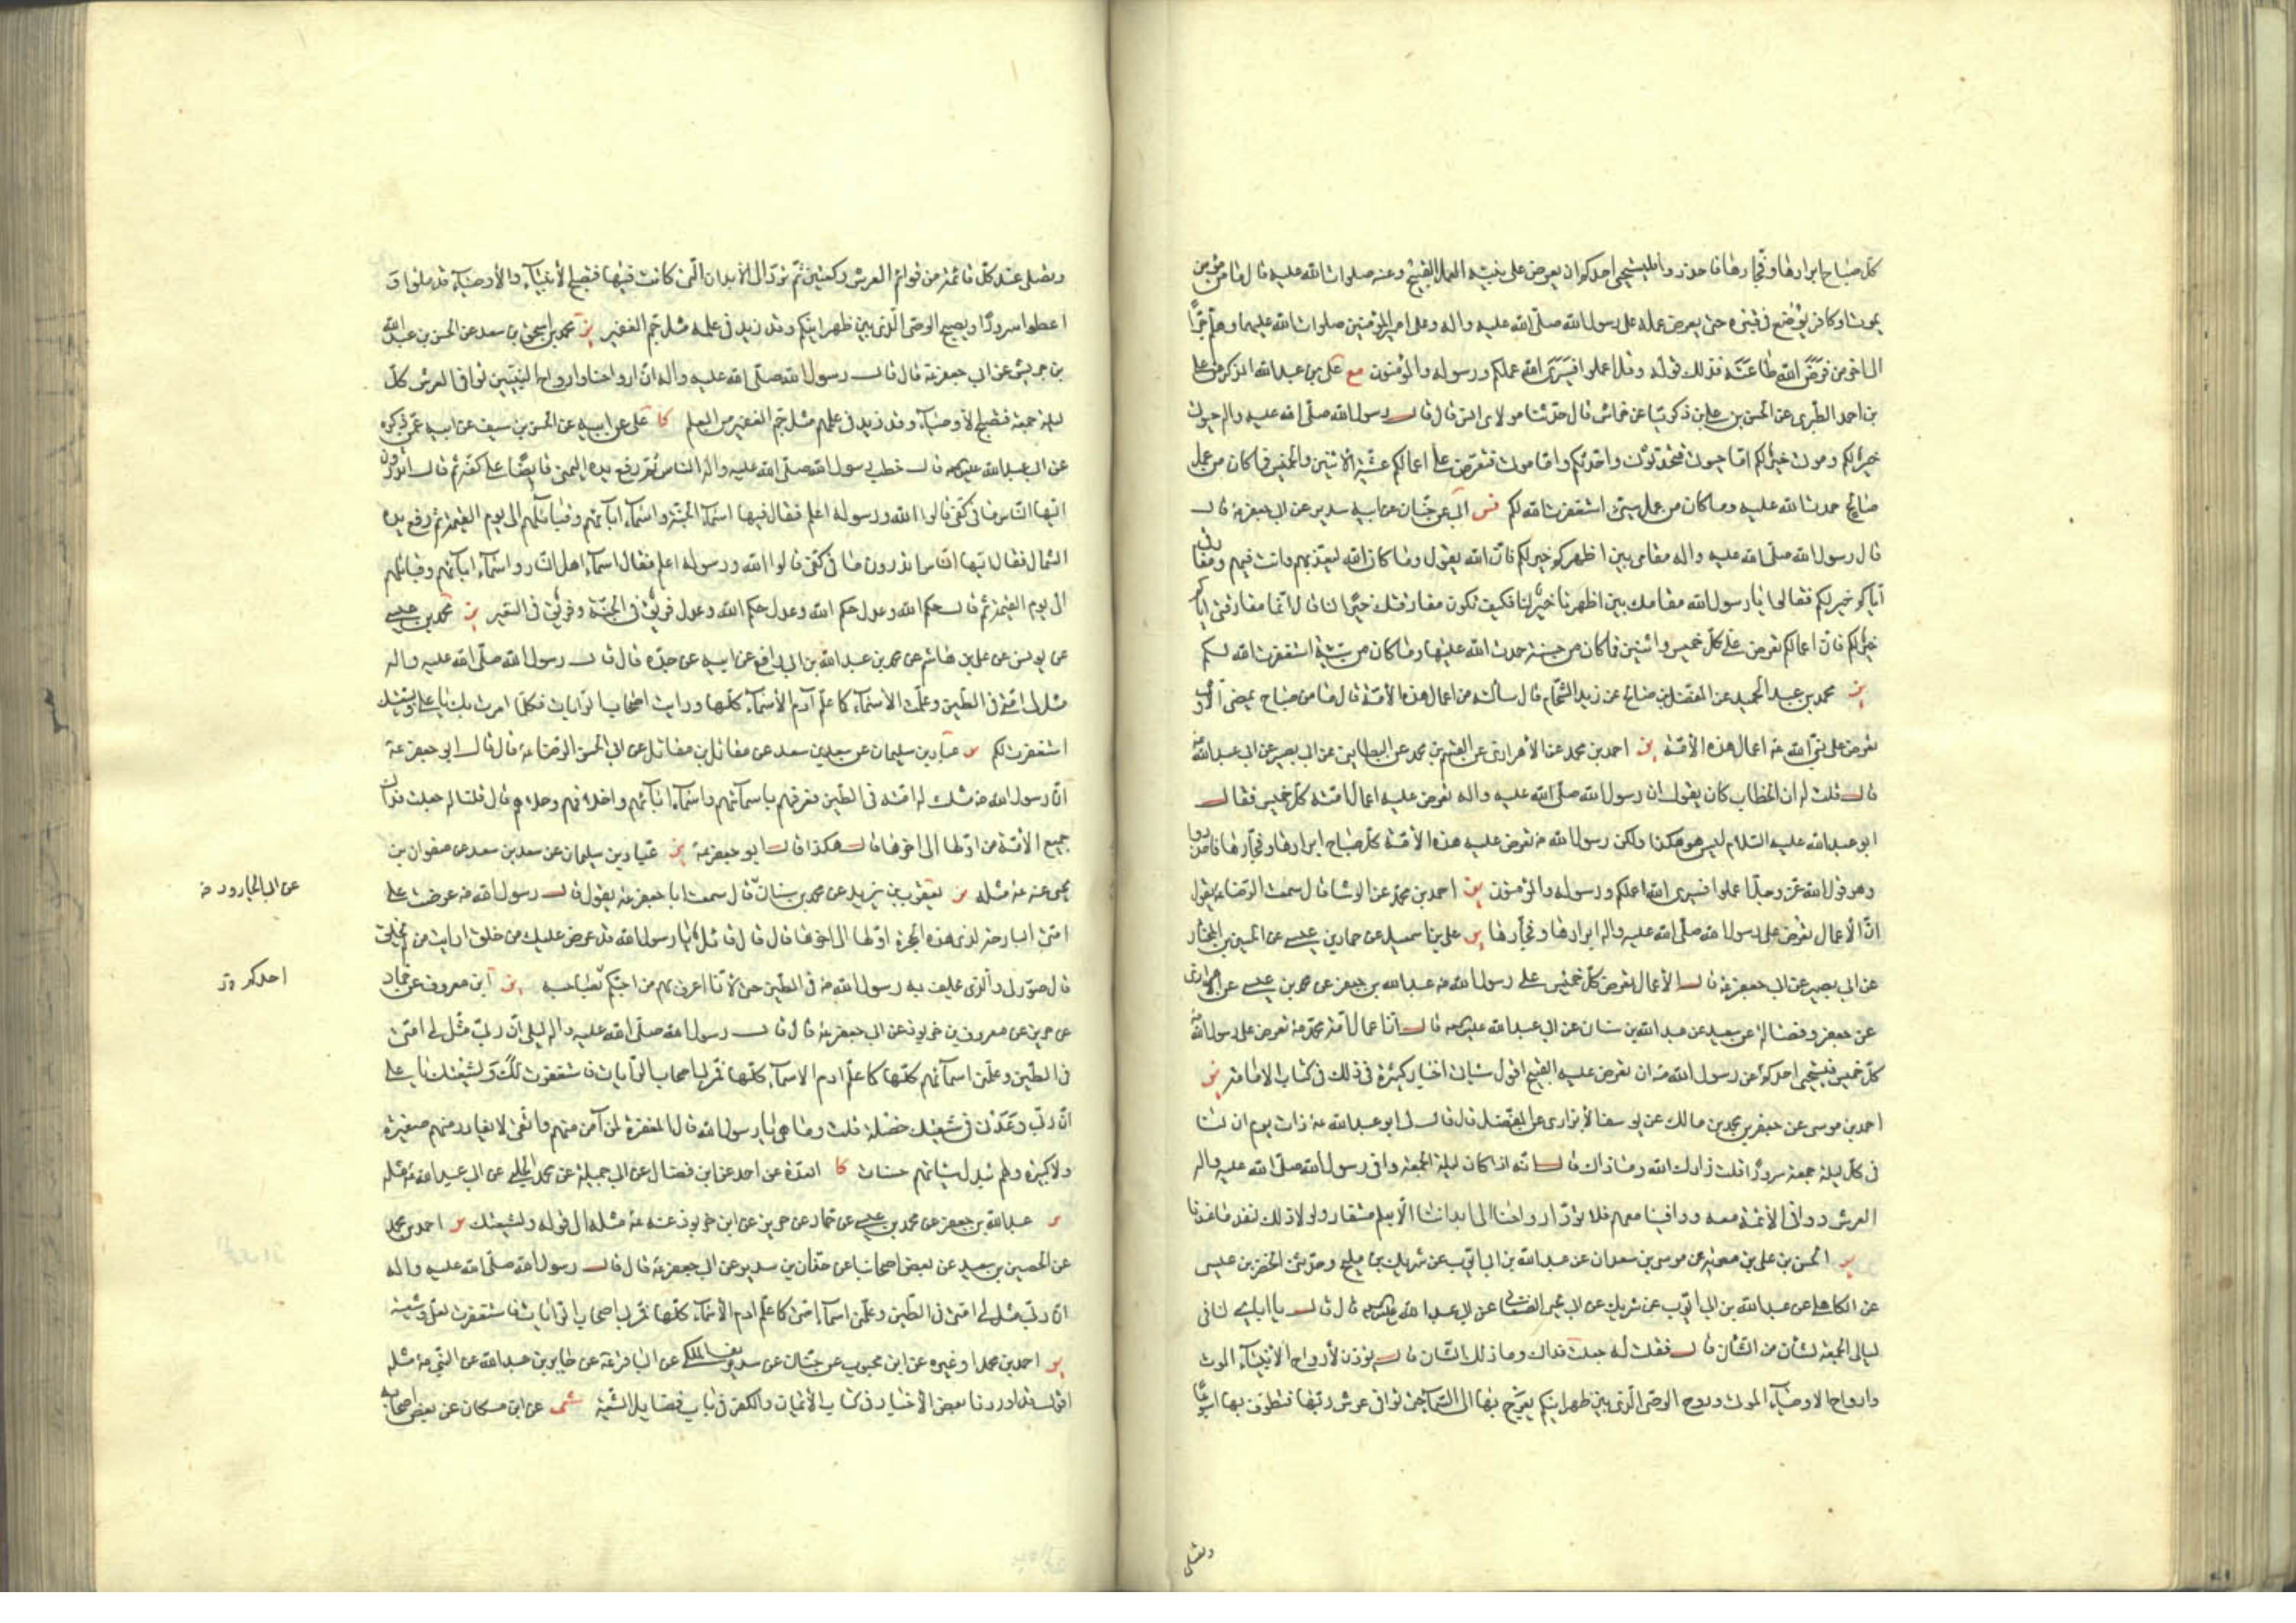 كلّ صباح ابرارها وفجّارها فاحذروا فليستحيى احدكم ان يعرض على نبيّه العمل القبيح وعنه صلوات الله عليه قال ما من مؤمن
يموت او كافر يوضع في قبره حتى يعرض عمله على رسول الله صلّى الله عليه واله وعلى امير المؤمنين صلوات الله عليهما وهلمّ جرّاً
الى اخر من فرض الله طاعته فذلك قوله وقل اعملوا فسيرى الله عملكم ورسوله والمؤمنون مع على بن عبدالله المذكر عن على
بن احمد الطبرى عن الحسن بن على بن زكريا عن خراش قال حدّثنا مولاى انس قال قال رسول الله صلّى الله عليه واله حيوتى
خير لكم وموتى خير لكم امّا حيوتى فتحدّثون واحدّثكم وامّا موتى فتعرض علىّ اعمالكم عشيّة الاثنين والخميس فما كان من عمل
صالح حمدت الله عليه وما كان من عمل سيّئ استغفرت الله لكم فس ابى عن حنّان عن ابيه سدير عن ابى جعفر ع قال
قال رسول الله صلّى الله عليه واله مقامى بين اظهركم خير لكم فانّ الله يقول وما كان الله ليعذّبهم وانت فيهم ومفارقتى
ايّاكم خير لكم فقالوا يا رسول الله مقامك بين اظهرنا خير لنا فكيف تكون مفارقتك خيراً لنا قال امّا مفارقتى ايّاكم
خير لكم فانّ اعمالكم تعرض علىّ كلّ خميس واثنين فما كان من حسنة حمدت الله عليها وما كان من سيّئة استغفرت الله لكم
ير محمد بن عبد الحميد عن المفضّل بن صالح عن زيد الشحّام قال سألته عن اعمال هذه الأمّة قال ما من صباح يمضى الّا و
تعرض على نبىّ الله ص اعمال هذه الأمّة ير احمد بن محمد عن الأهوازى عن القسم بن محمد عن البطاينى عن ابى بصير عن ابى عبدالله ع
قال قلت له ان ابا الخطاب كان يقول ان رسول الله صلّى الله عليه واله تعرض عليه اعمال امّته كلّ خميس فقال
ابو عبدالله عليه السّلام ليس هو هكذا ولكن رسول الله ص تعرض عليه هذه الأمّة كلّ صباح ابرارها وفجّارها فاحذروا
وهو قول الله عزّ وجلّ اعملوا فسيرى الله عملكم ورسوله والمؤمنون ير احمد بن محمد عن الوشا قال سمعت الرّضا ع يقول
انّ الأعمال تعرض على رسول الله صلّى الله عليه واله ابرارها وفجّارها ير على بن اسمعيل عن حماد بن عيسى عن الحسين بن المختار
عن ابى بصير عن ابى جعفر ع قال الأعمال تعرض كلّ خميس على رسول الله ص عبدالله بن جعفر عن محمد بن عيسى عن الاهوازى
عن جعفر وفضالة عن سعيد عن عبدالله بن سنان عن ابى عبدالله عليه السلام قال انّ اعمال امّة محمّد ص تعرض على رسول الله ص
كلّ خميس فليستحيى احدكم من رسول الله ص ان تعرض عليه القبيح اقول سيأتى اخبار كثيرة فى ذلك فى كتاب الامامة ير
احمد بن موسى عن جعفر بن محمد بن مالك عن يوسف الأبزارى عن المفضّل قال قال لى ابو عبدالله ع ذات يوم ان لنا
فى كلّ ليلة جمعة سروراً قلت زادك الله وما ذاك قال انّه اذا كان ليلة الجمعة وافى رسول الله صلّى الله عليه واله
العرش ووافى الأئمّة معه ووافينا معهم فلا تردّ ارواحنا الى ابداننا الّا بعلم مستفاد ولولا ذلك لنفد ما عندنا
ير الحسن بن على بن معوية عن موسى بن سعدان عن عبدالله بن ابى ايّوب عن شريك بن مليح وحدّثنى الخضر بن عيسى
عن الكاهلى عن عبدالله بن ابى ايّوب عن شريك عن ابى يحيى الصنعانى عن ابى عبدالله عليه السلام قال قال يا ابا يحيى لنا فى
ليالى الجمعة لشأن من الشّأن قال فقلت له جعلت فداك وما ذلك الشّأن قال يؤذن لأرواح الأنبياء الموتى
وارواح الاوصياء الموتى وروح الوصىّ الّذى بين ظهرانيكم يعرج بها الى السّماء حتى توافى عرش ربّها فتطوف بها اسبوعاً
وتصلى
وتصلى عند كلّ قائمة من قوائم العرش ركعتين ثمّ تردّ الى الأبدان الّتى كانت فيها فتصبح الأنبياء والأوصياء قد ملئوا و
اعطوا سروراً ويصبح الوصىّ الّذى بين ظهرانيكم وقد زيد فى علمه مثل جمّ الغفير ير محمد بن اسحق بن سعد عن الحسن بن عبدالله
بن جريش عن ابى جعفر ع قال قال رسول الله صلّى الله عليه واله انّ ارواحنا وارواح النبيّين توافى العرش كلّ
ليلة جمعة فتصبح الأوصياء وقد زيد فى علمهم مثل جمّ الغفير من العلم كا على عن ابيه عن الحسن بن سيف عن ابيه عمّن ذكره
عن ابى عبدالله عليه السلام قال خطب رسول الله صلّى الله عليه واله الناس ثمّ رفع يده اليمنى قابضاً على كفّه ثم قال أتدرون
ايّها النّاس ما فى كفّى قالوا الله ورسوله اعلم فقال فيها اسماء اهل الجنّة واسماء ابائهم وقبائلهم الى يوم القيمة ثم رفع يده
الشمال فقال ايّها النّاس اتدرون ما فى كفّى قالوا الله ورسوله اعلم فقال اسماء اهل النّار واسماء ابائهم وقبائلهم
الى يوم القيمة ثم قال حكم الله وعدل حكم الله وعدل حكم الله وعدل فريق فى الجنّة وفريق فى السّعير ير محمد بن عيسى
عن يونس عن على بن هاشم عن محمد بن عبدالله بن ابى رافع عن ابيه عن جدّه قال قال رسول الله صلّى الله عليه واله
مثّل لى امّتى فى الطّين وعلّمت الأسماء كما علّم آدم الأسماء كلّها ورايت اصحاب الرّايات فكلّما مررت بك يا على وبشيعتك
استغفرت لكم ير عبّاد بن سليمان عن سعد بن سعد عن مقاتل بن مقاتل عن ابى الحسن الرّضا ع قال قال ابو جعفر ع
انّ رسول الله ص مثّلت له امّته فى الطّين فعرفهم باسمائهم واسماء ابائهم واخلاقهم وحلاهم قال قلت له جعلت فداك
جميع الأمّة من اوّلها الى اخرها قال هكذا قال ابو جعفر ع ير عباد بن سليمان عن سعد بن سعد عن صفوان بن
يحيى عنه ع مثله ير يعقوب بن يزيد عن محمد بن سنان قال سمعت ابا جعفر ع يقول قال رسول الله ص عرضت علىّ
عن ابى الجارود ص
امّتى البارحة لدى هذه الحجرة اوّلها الى اخرها قال قال قائل يا رسول الله قد عرض عليك من خلق ارايت من لم يخلق
قال صوّر لى والّذى يحلف به رسول الله ص فى الطّين حتى لأنا اعرف بهم من احدكم بصاحبه ير ابن معروف عن حماد
احدكم
عن حريز عن معروف بن خربوذ عن ابى جعفر ع قال قال رسول الله صلّى الله عليه واله لعلى انّ ربّى مثّل لى امّتى
فى الطّين وعلّمنى اسمائهم كلّها كما علّم ادم الاسماء كلّها فمرّ بى اصحاب الرّايات فاستغفرت لك ولشيعتك يا على
انّ ربّى وعدنى فى شيعتك خصلة قلت وما هى يا رسول الله قال المغفرة لمن آمن منهم واتّقى لا يغادر منهم صغيرة
ولا كبيرة ولهم تبدل سيئاتهم حسنات كا العدّة عن احمد عن ابن فضال عن ابى جميلة عن محمد الحلبى عن ابى عبدالله ع مثله
ير عبدالله بن جعفر عن محمد بن عيسى عن حماد عن حريز عن ابن خربوذ عنه ع مثله الى قوله ولشيعتك ير احمد بن محمد
عن الحسين بن سعيد عن بعض اصحابنا عن حنان بن سدير عن ابى جعفر ع قال قال رسول الله صلّى الله عليه واله
انّ ربّى مثّل لى امّتى فى الطّين وعلّمنى اسماء امّتى كما علّم ادم الأسماء كلّها فمرّ بى اصحاب الرّايات فاستغفرت لعلىّ وشيعته
ير احمد بن محمد او غيره عن ابن محبوب عن حنّان عن سديف المكى عن الباقر ع عن جابر بن عبدالله عن النّبى ص مثله
اقول قد اوردنا بعض الأخبار فى كتاب الأيمان والكفر فى باب فضايل الشّيعة شى عن ابن مسكان عن بعض اصحابه